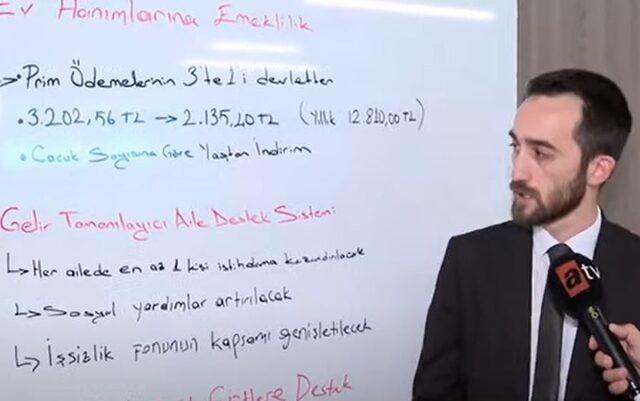 Ev Hanımlarına Emeklilik
→• Prim Ödemelerinin 3'te 1'i devletten
• 3.202,56 TL → 2.135,10 TL (Yıllık 12.810,00 TL)
• Çocuk Sayısına Göre Yaştan İndirim
Gelir Tamamlayıcı Aile Destek Sistemi
↳ Her ailede en az 1 kişi istihdama kazandırılacak
↳ Sosyal yardımlar artırılacak
↳ İşsizlik Fonunun kapsamı genişletilecek
Çiftlere Destek
atv